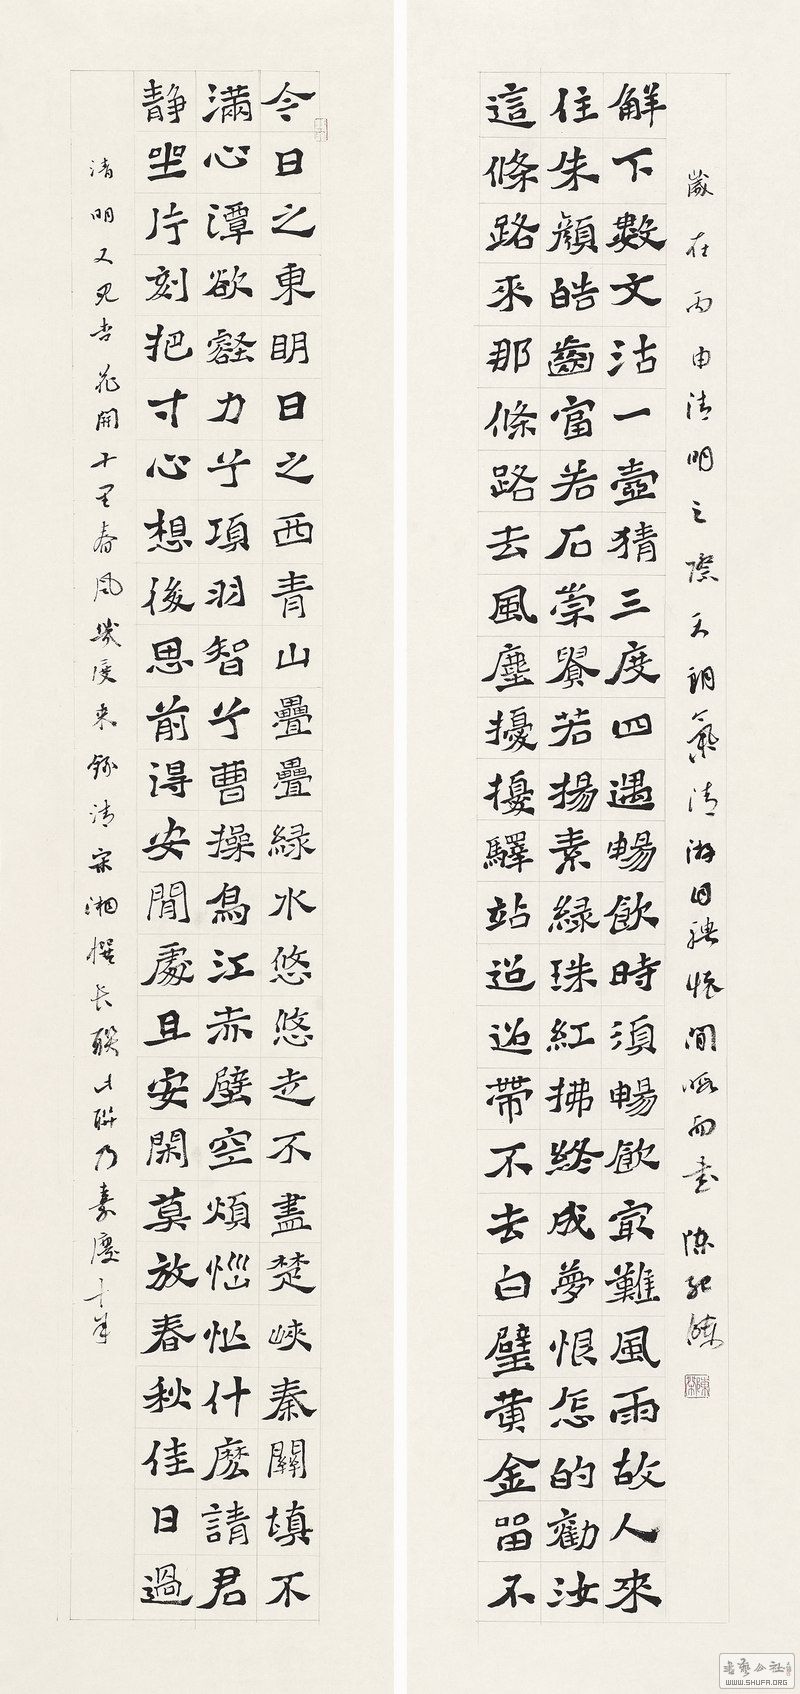 今日之東明日之西青山疊疊綠水悠悠走不盡楚峽秦關填不
滿心潭欲壑力兮項羽智兮曹操烏江赤壁空煩惱忙什麽請君
靜坐片刻把寸心想後思前得安閒處且安閑莫放春秋佳日過
清明又見杏花開十里春風幾度來錄清宋湘撰長聯此聯乃嘉慶十年
這條路來那條路去風塵擾擾驛站迢迢帶不去白璧黃金留不
住朱顏皓齒富若石崇貴若揚素綠珠紅拂終成夢恨怎的勸汝
解下數文沽一壺猜三度四遇暢飲時須暢飲最難風雨故人來
歲在丙申清明之際天朗氣清游目騁懷閒暇而書陳
書藝公社
WWW.SHUFA.ORG